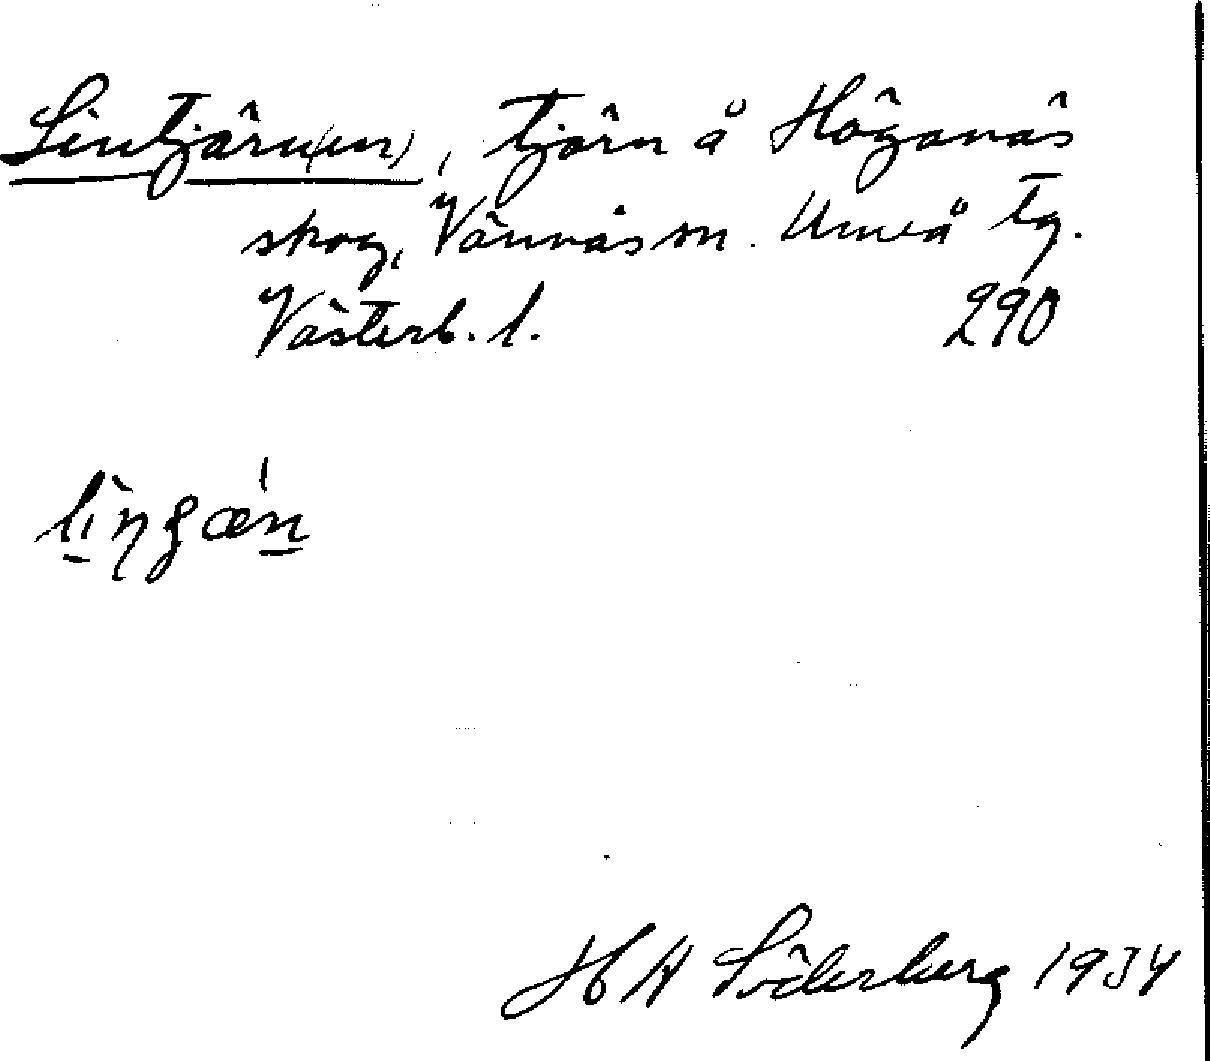 Lintjärn(en), tjärn å Höganäs
skog, Vännäs sn. Umeå tg.
Västerb. l. 290
H A Söderberg 1934